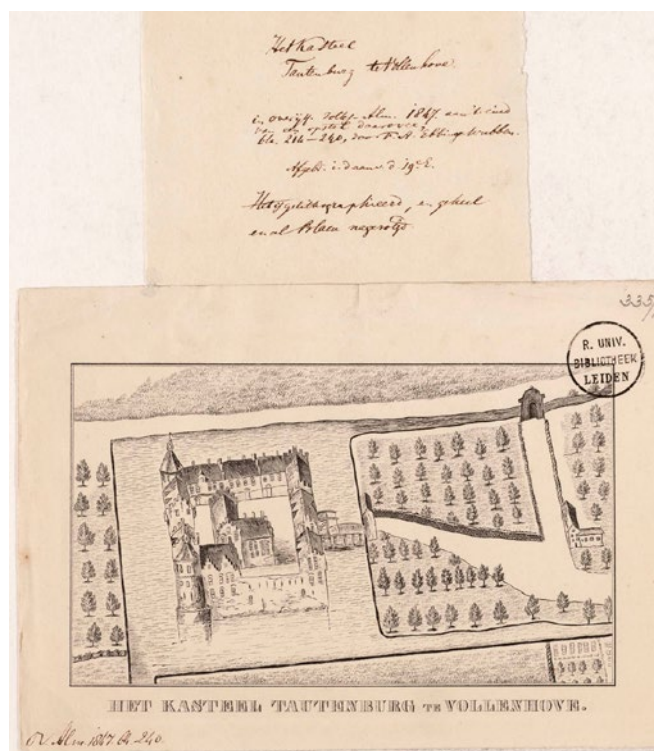 Het Kasteel
Tautenburg te Vollenhove
in overijss. volks-Alm. 1847. aan 't eind
van een opstel daarover,
blz. 214-240, door F. A. Ebbinge Wubben.
Afgeb. in d'aanv. d. 19e E.
gelithographieerd, en geheel
Blaeu
335
R. UNIV.
BIBLIOTHEEK
LEIDEN
HET KASTEEL TAUTENBURG TE VOLLENHOVE.
Alm. 1847. bl. 240.